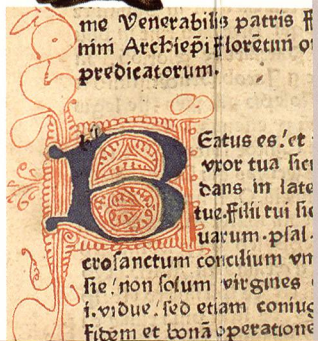 me Venerabilis patris f
nini Archiep̄i Florētini o
predicatorum.
B Eatus es! et
vxor tua sic
dans in late
tue. Filii tui sic
uarum. psal.
crosanctum concilium vn
sie! non solum virgines
i. vidue! sed etiam coniug
fidem et bonā operatione